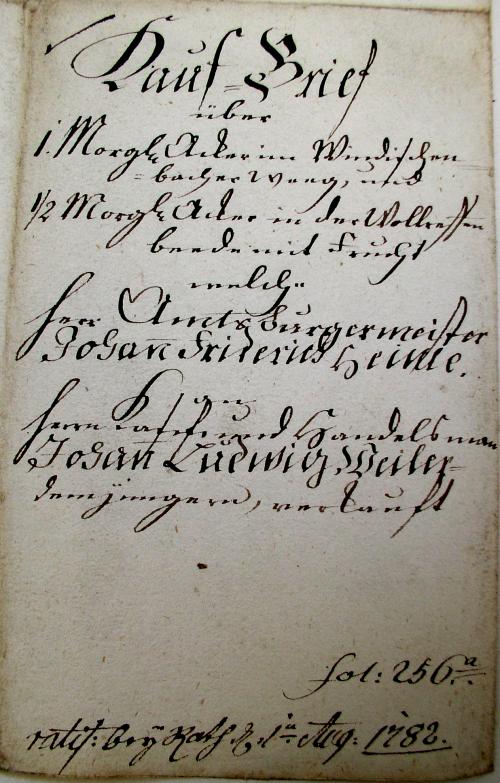 Kauf=Brief
über
1. Morgl. Acker im Windischen
=bacher Weeg, und
1/2 Morgl. Acker in der Wollreffen
beede mit Frucht
welche
Herr Amts Burgermeister
Johan̄ Friderich Heinle.
an
Herrn Kauf= und Handelsman̄
Johan̄ Ludwig Weiler
dem jüngern, verkauft
fol: 256.a
ratif: bey Rath d. 1. Aug: 1782.